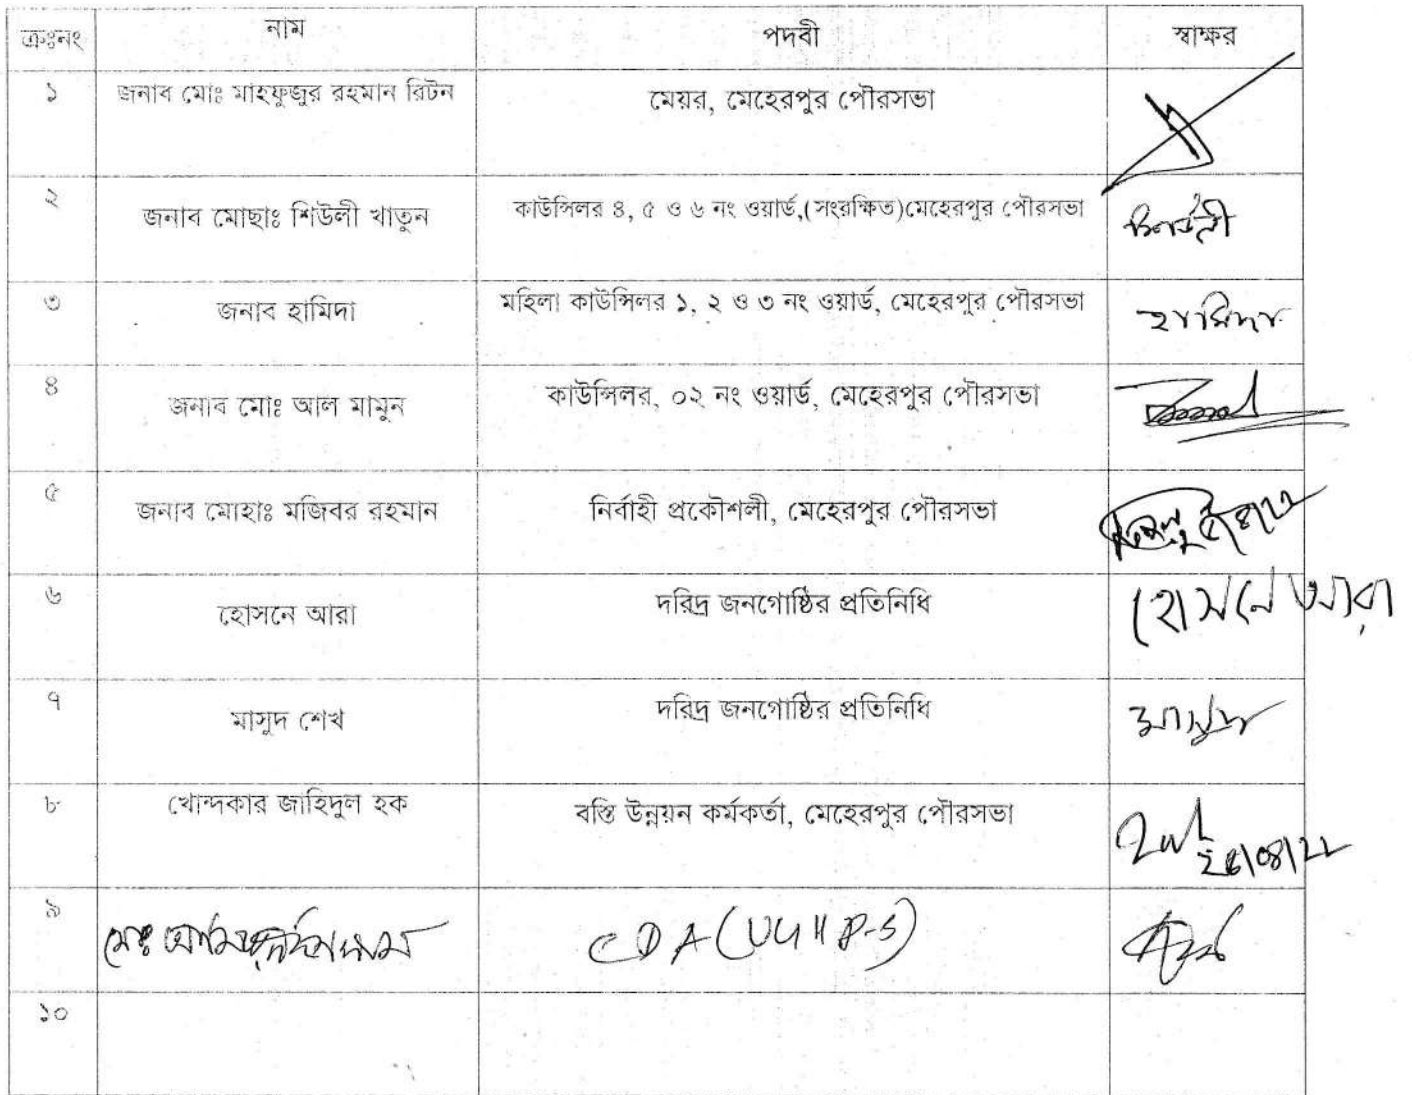 ক্রঃনং নাম পদবী স্বাক্ষর
১ জনাব মোঃ মাহফুজুর রহমান রিটন মেয়র, মেহেরপুর পৌরসভা
২ জনাব মোছাঃ শিউলী খাতুন কাউন্সিলর ৪, ৫ ও ৬ নং ওয়ার্ড,(সংরক্ষিত)মেহেরপুর পৌরসভা
৩ জনাব হামিদা মহিলা কাউন্সিলর ১, ২ ও ৩ নং ওয়ার্ড, মেহেরপুর পৌরসভা হামিদা
৪ জনাব মোঃ আল মামুন কাউন্সিলর, ০২ নং ওয়ার্ড, মেহেরপুর পৌরসভা
৫ জনাব মোহাঃ মজিবর রহমান নির্বাহী প্রকৌশলী, মেহেরপুর পৌরসভা
৬ হোসনে আরা দরিদ্র জনগোষ্ঠির প্রতিনিধি হোসনে আরা
৭ মাসুদ শেখ দরিদ্র জনগোষ্ঠির প্রতিনিধি মাসুদ
৮ খোন্দকার জাহিদুল হক বস্তি উন্নয়ন কর্মকর্তা, মেহেরপুর পৌরসভা
৯ মোঃ CDA
১০